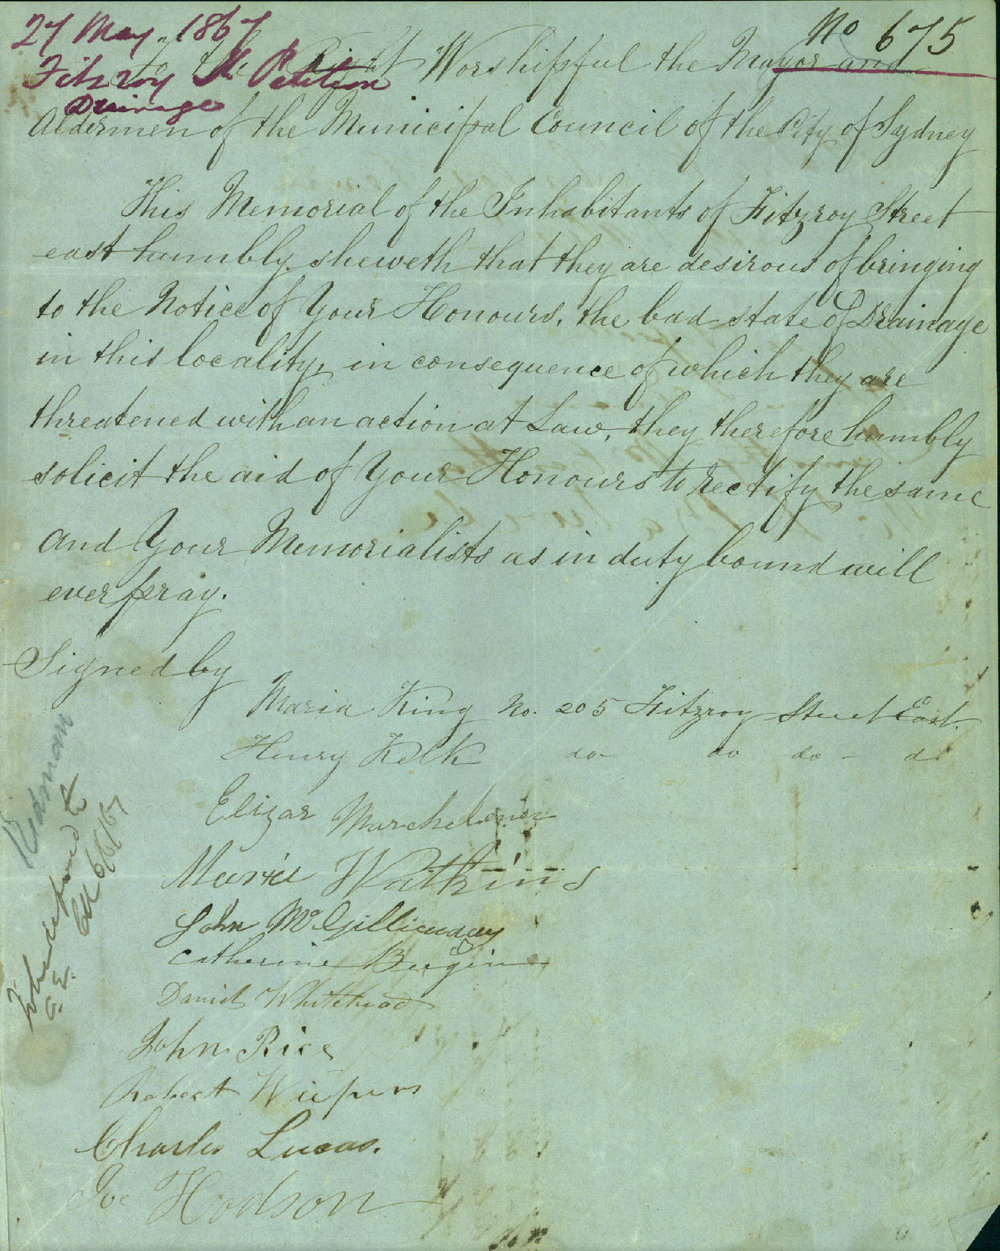 27 May 1867
No 675
Fitzroy St Petition
Drainage
To the Right Worshipful the Mayor and
Aldermen of the Municipal Council of the City of Sydney
This Memorial of the Inhabitants of Fitzroy Street
east humbly sheweth that they are desirous of bringing
to the Notice of Your Honours, the bad state of Drainage
in this locality, in consequence of which they are
threatened with an action at Law, they therefore humbly
solicit the aid of Your Honours to rectify the same
and Your Memorialists as in duty bound will
ever pray.
Signed by
Maria King No. 205 Fitzroy Street East.
Henry Kelk do do do do
Elizar
Maria Watkins
John McGillicuddy
Catherine
Daniel Whitehead
John Rice
Robert
Charles Lucas.
Joe Hodson
Redman